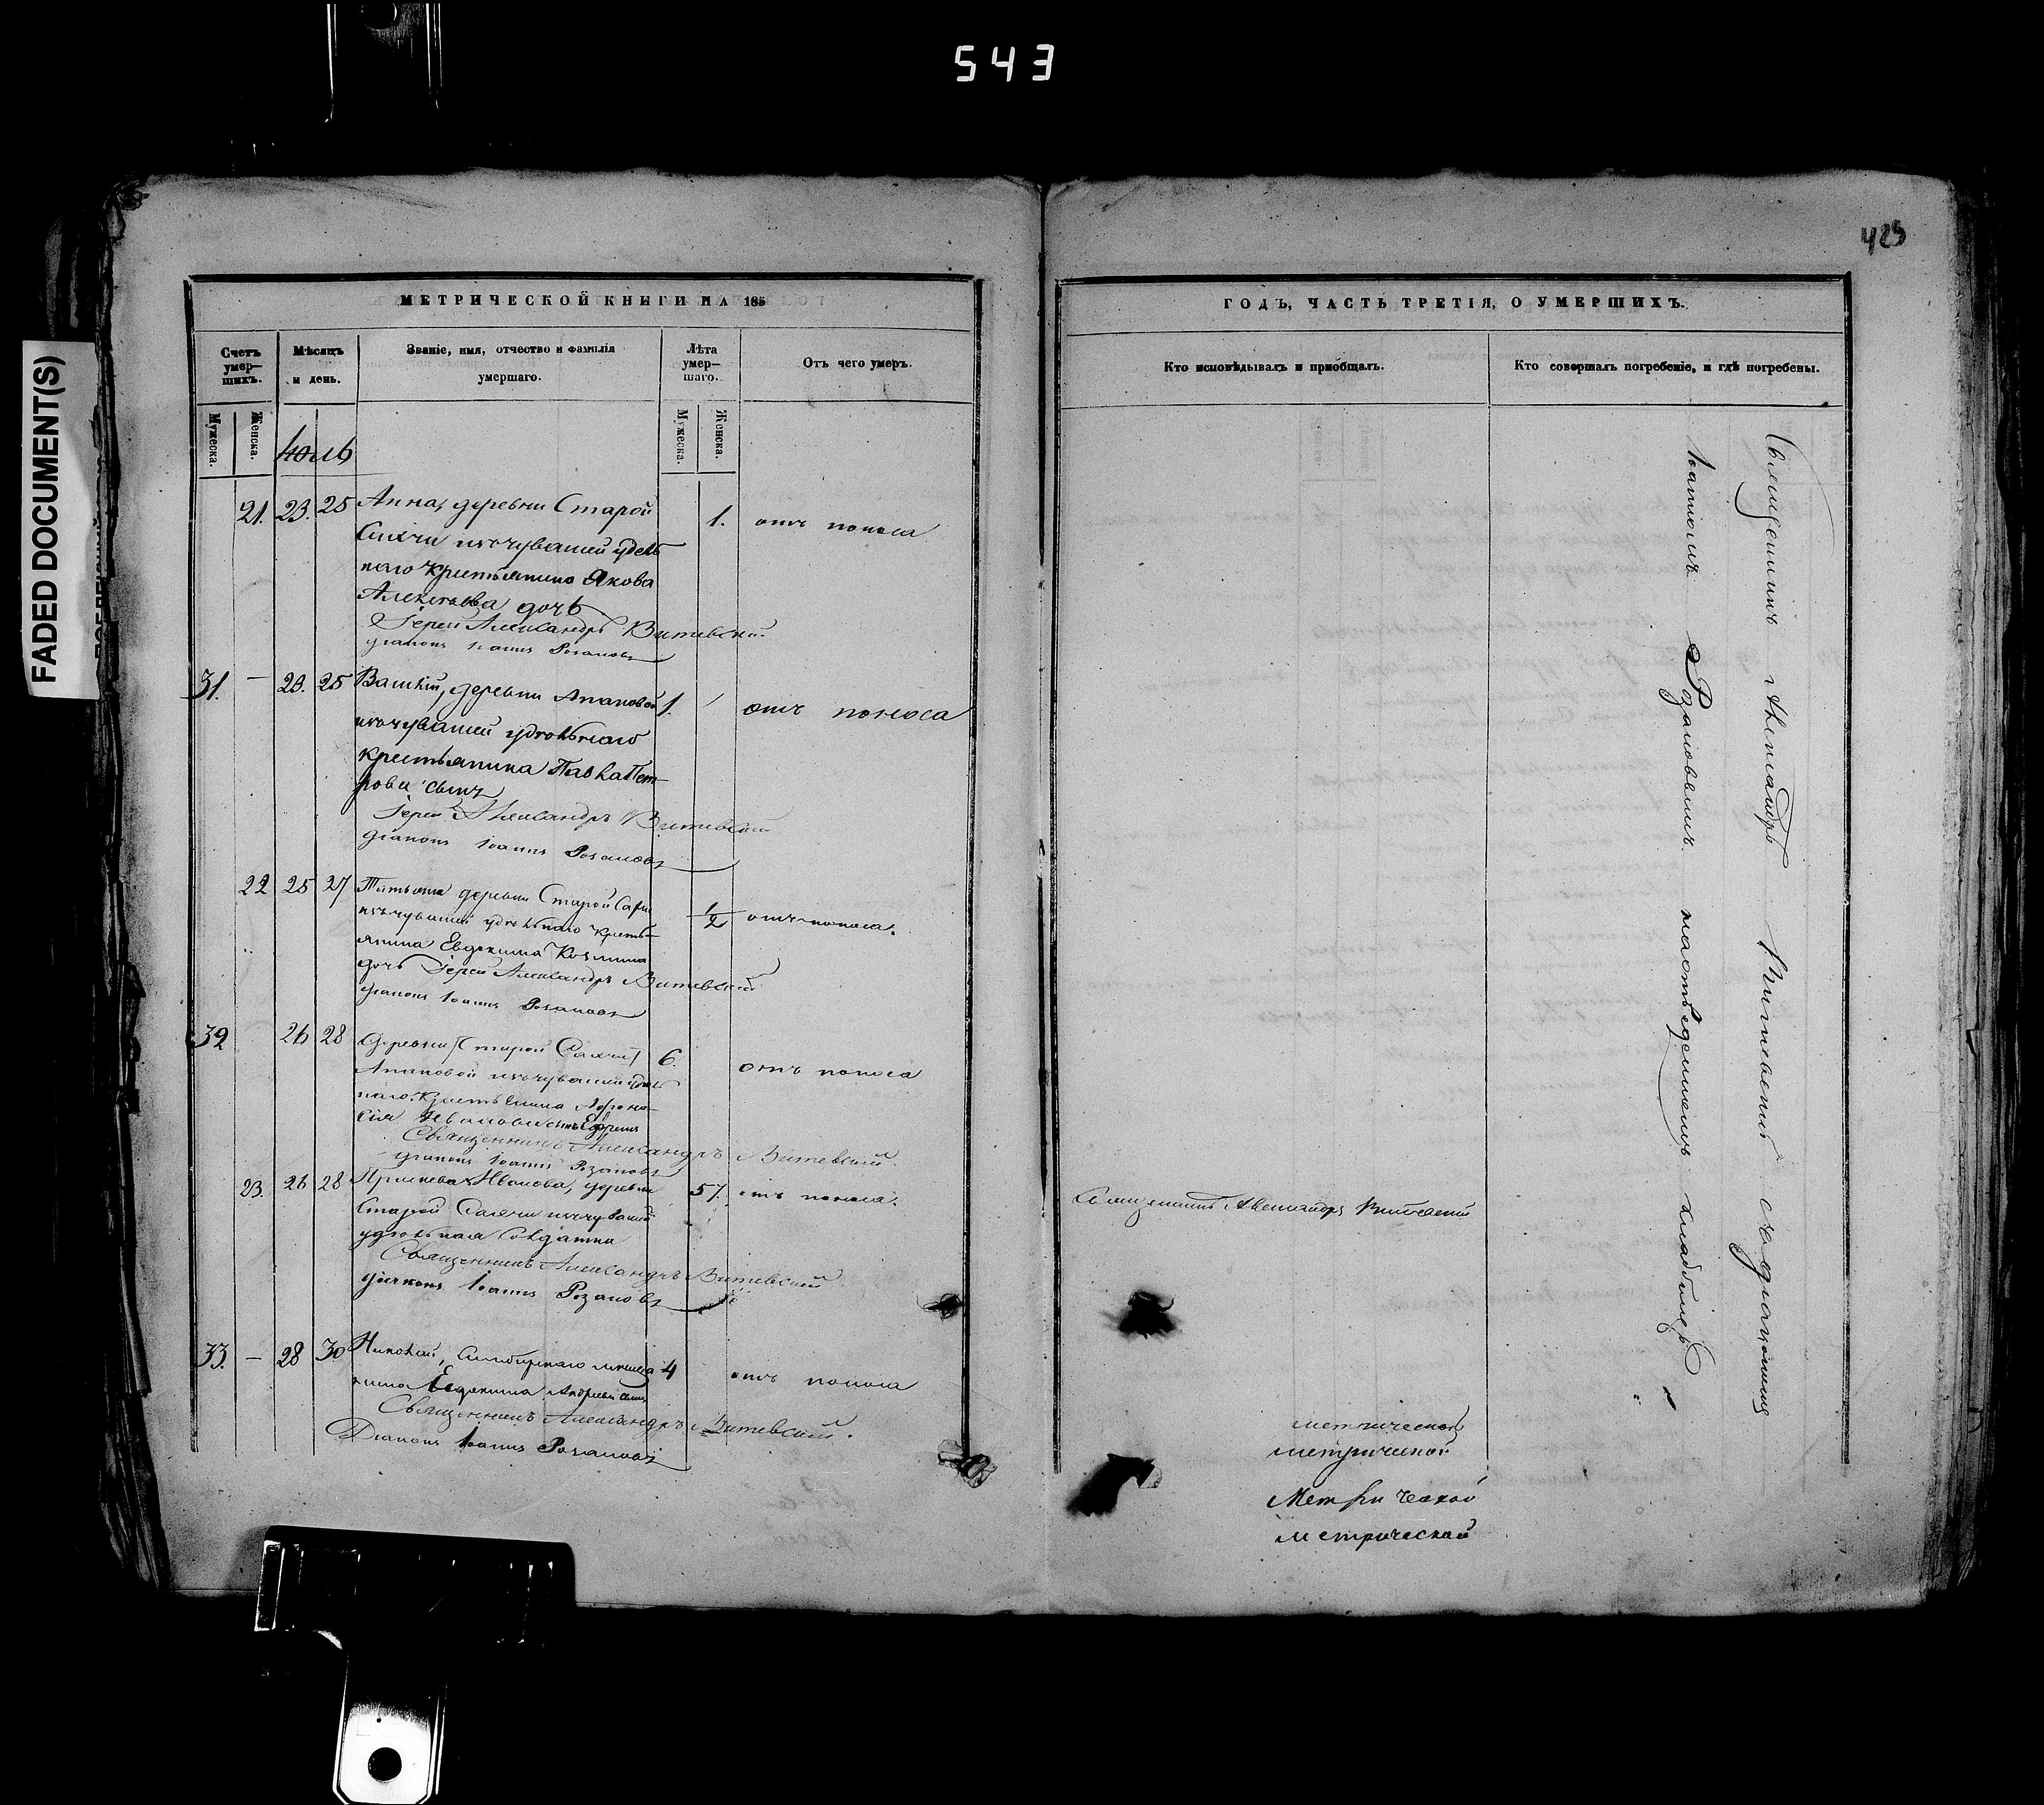 543
FADED DOCUMENT(S)
425
МЕТРИЧЕСКОЙ КНИГИ НА 185
Счетъ умер-шихъ.
Мѣсяцъ и день.
Званіе, имя, отчество и фамилія умершаго.
Лѣта умер-шаго.
Отъ чего умеръ.
Мужеска.
Женска.
Мужеска.
Женска.
Юль
21. 23. 25 Анна, деревни Старой 1. отъ поноса
изъ чувашей удѣль
наго крестьянина Якова
Алексѣева дочь
Іерей Александръ Витевскій
діаконъ Іоаннъ Розановъ
31. — 23. 25 деревни Апановой 1. отъ поноса
изъ чувашей удѣльнаго
крестьянина Павла Пет-
рова сынъ
Іерей Александръ Витевскій
діаконъ Іоаннъ Розановъ
22 25 27 деревни Старой 1/2 отъ поноса.
изъ чувашей удѣльнаго кресть-
янина Евдокима Козмина
дочь Іерей Александръ Витевскій
діаконъ Іоаннъ Розановъ
32 26 28 деревни Старой 6. отъ поноса
Апановой изъ чувашей удѣль
наго крестьянина Афона-
сія Иванова сынъ Ефремъ
Священникъ Александръ Витевскій
діаконъ Іоаннъ Розановъ
23. 26 28 Иванова, деревни 57. отъ поноса.
Старой изъ чувашей
удѣльная Солдатка
Священникъ Александръ Витевскій
діаконъ Іоаннъ Розановъ
33. — 28 30 Николай, Симбирскаго 4 отъ поноса
Евдокима Андреева сынъ
Священникъ Александръ Витевскій.
Діаконъ Іоаннъ Розановъ
ГОДЪ, ЧАСТЬ ТРЕТІЯ, О УМЕРШИХЪ.
Кто исповѣдывалъ и пріобщалъ.
Кто совершалъ погребеніе, и гдѣ погребены.
Священникъ Александръ Витевскій
Священникъ Александръ Витевскій съ діакономъ
Іоанномъ Розановымъ на отведенномъ кладбищѣ
метрической
метрической
Метрической
метрической